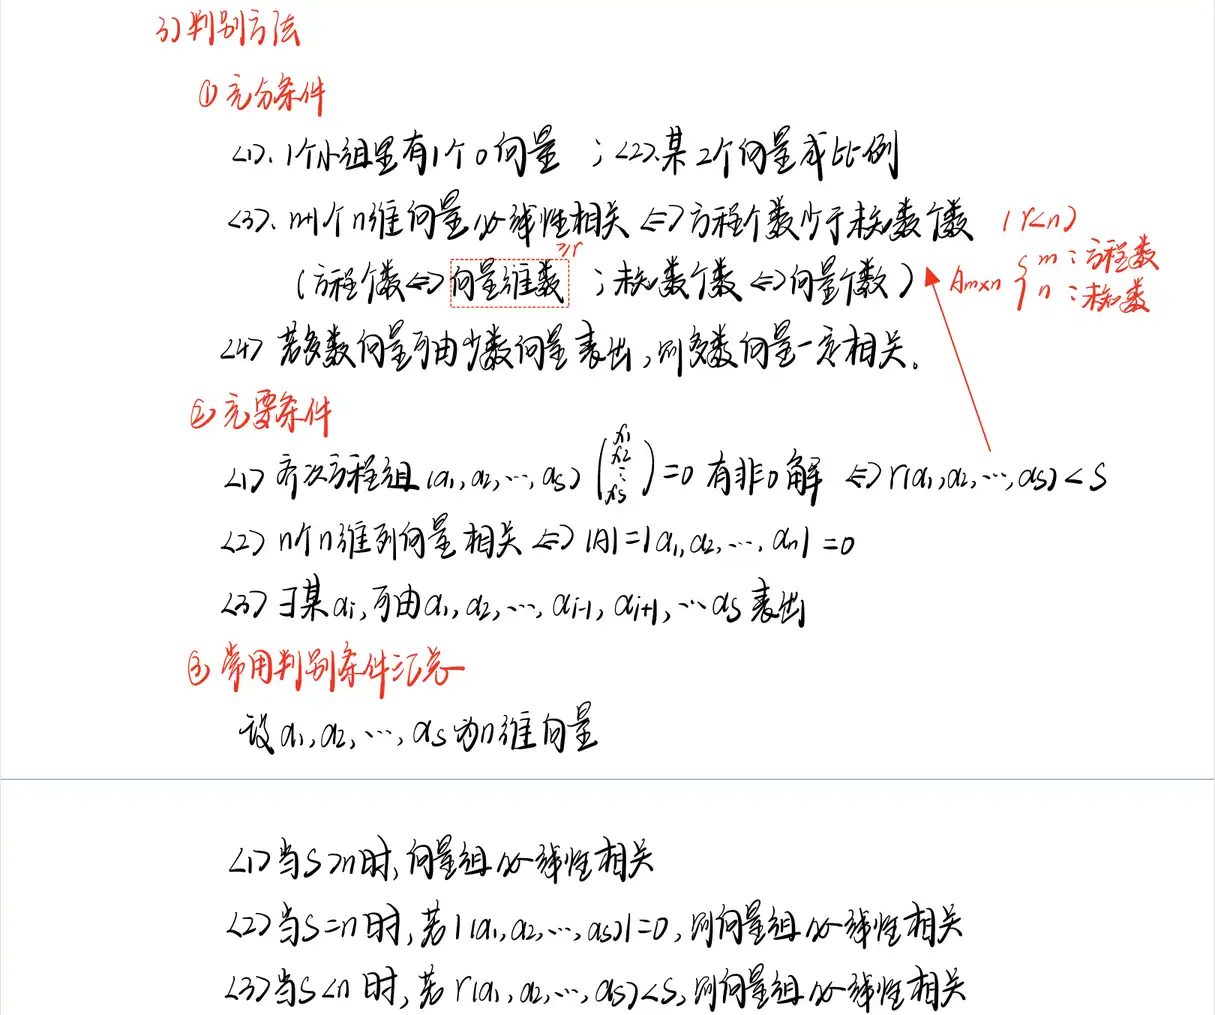 3) 判别方法
① 充分条件
<1>. 1个小组里有1个0向量 ; <2>.某2个向量成比例
<3>. n+1个n维向量必线性相关 <=> 方程个数少于未知数个数 (r<n)
(方程个数<=>向量维数 ; 未知数个数<=>向量个数)
≥r
Am×n { m : 方程数
n : 未知数
<4> 若多数向量可由少数向量表出, 则多数向量一定相关.
② 充要条件
<1> 齐次方程组 (α1, α2, ···, αs) (x1 x2 ⋮ xs) =0 有非0解 <=> r(α1, α2, ···, αs) < S
<2> n个n维列向量相关 <=> |A|=|α1, α2, ···, αn| =0
<3> ∃某αi, 可由α1, α2, ···, αi-1, αi+1, ···αs 表出
③ 常用判别条件汇总
设 α1, α2, ···, αs 为n维向量
<1> 当S>n时, 向量组必线性相关
<2> 当S=n时, 若|(α1, α2, ···, αs)|=0, 则向量组必线性相关
<3> 当S<n时, 若 r(α1, α2, ···, αs)<S, 则向量组必线性相关